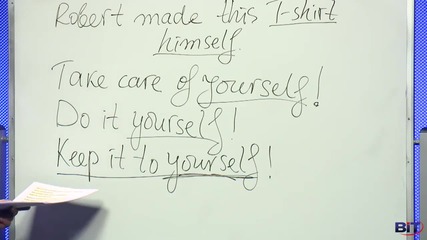 Robert made this T-shirt
himself.
Take care of yourself!
Do it yourself!
Keep it to yourself!
BIT